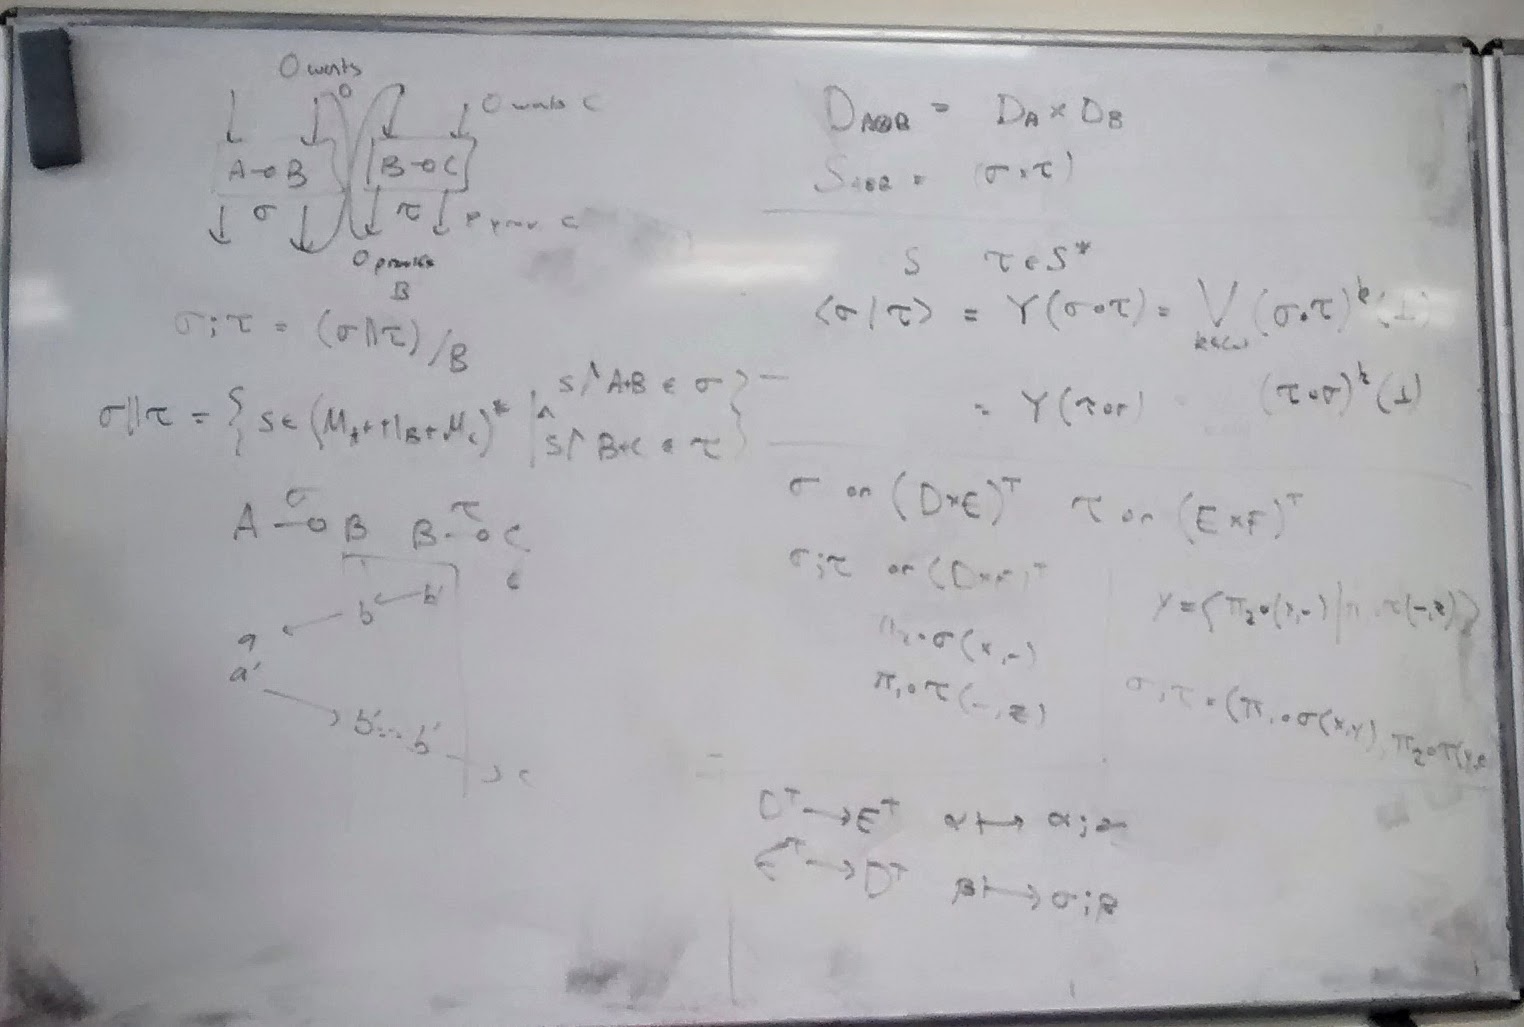 O wants
O wants C
A ⊸ B
B ⊸ C
σ
τ
C
O provides
B
σ;τ = (σ||τ)/B
σ||τ = { s ∈ (M_A + M_B + M_C)* | s↾A+B ∈ σ ∧ s↾B+C ∈ τ }
A ⊸ B B ⊸ C
σ τ
c
b b'
a
a'
b' ... b'
c
D_{A⊗B} = D_A × D_B
S_{A⊗B} = (σ × τ)
S τ ∈ S*
⟨σ|τ⟩ = Y(σ∘τ) = ⋁_{k∈ω} (σ∘τ)^k (⊥)
= Y(τ∘σ) (τ∘σ)^k (⊥)
σ on (D×E)^⊤ τ on (E×F)^⊤
σ;τ on (D×F)^⊤
π₂∘σ(x,-)
π₁∘τ(-,z)
y = ⟨π₂∘(x,-) | π₁ τ(-,z)⟩
σ;τ = (π₁∘σ(x,y), π₂∘τ(y,z
D^⊤ → E^⊤ α ↦ α;σ
E^⊤ → D^⊤ β ↦ σ;β